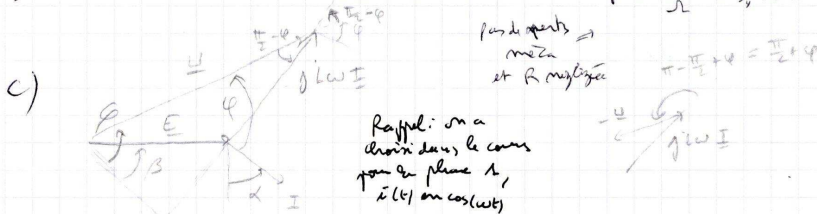 π/2-φ
π/2-φ
φ
U
jLωI
φ
c)
φ
E
β
α
I
pas de pertes ⇒
méca
et R négligée
Rappel : on a
choisi dans le cours
pour la phase 1,
i(t) en cos(ωt)
π-π/2+φ = π/2+φ
-U
jLωI